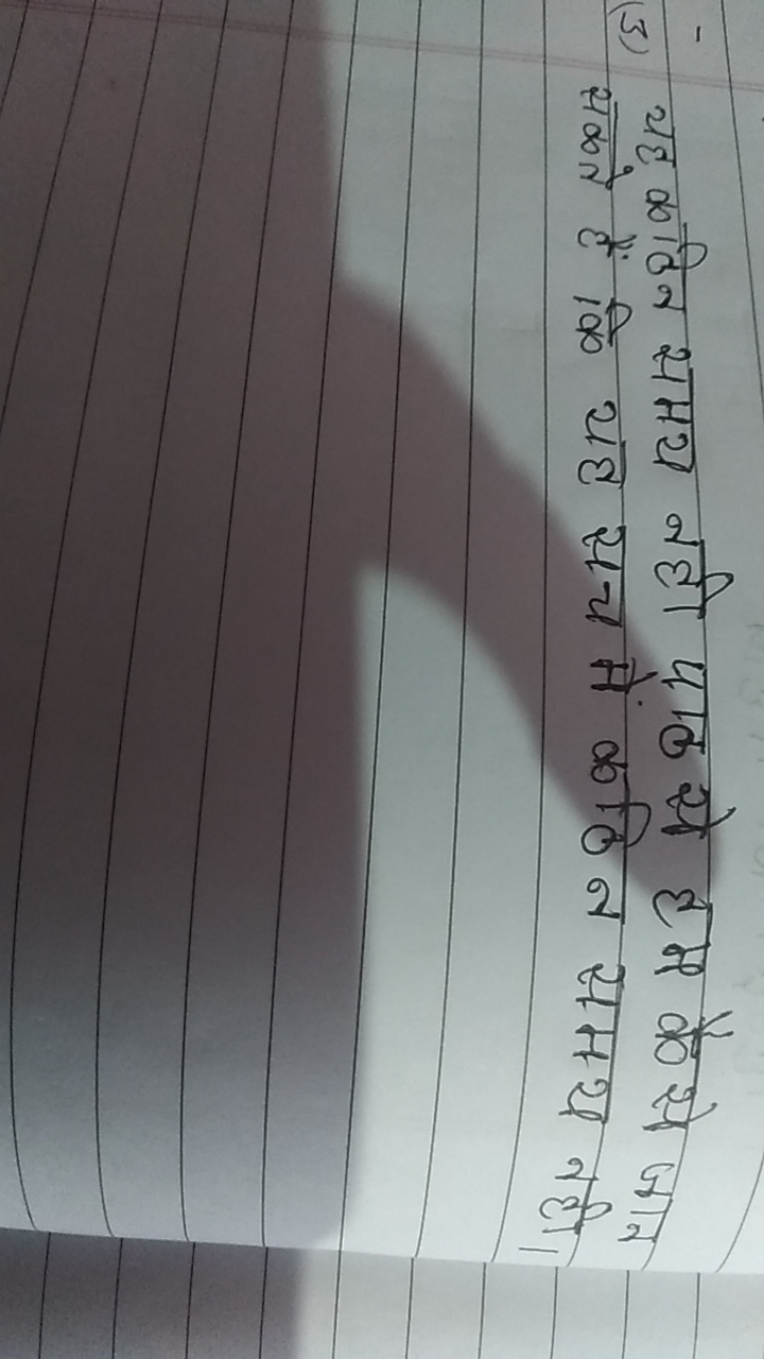 (3) यह कठिन समय नही पाठ से हम कैसे जान
सकते हैं कि यह सच में कठिन समय नही।